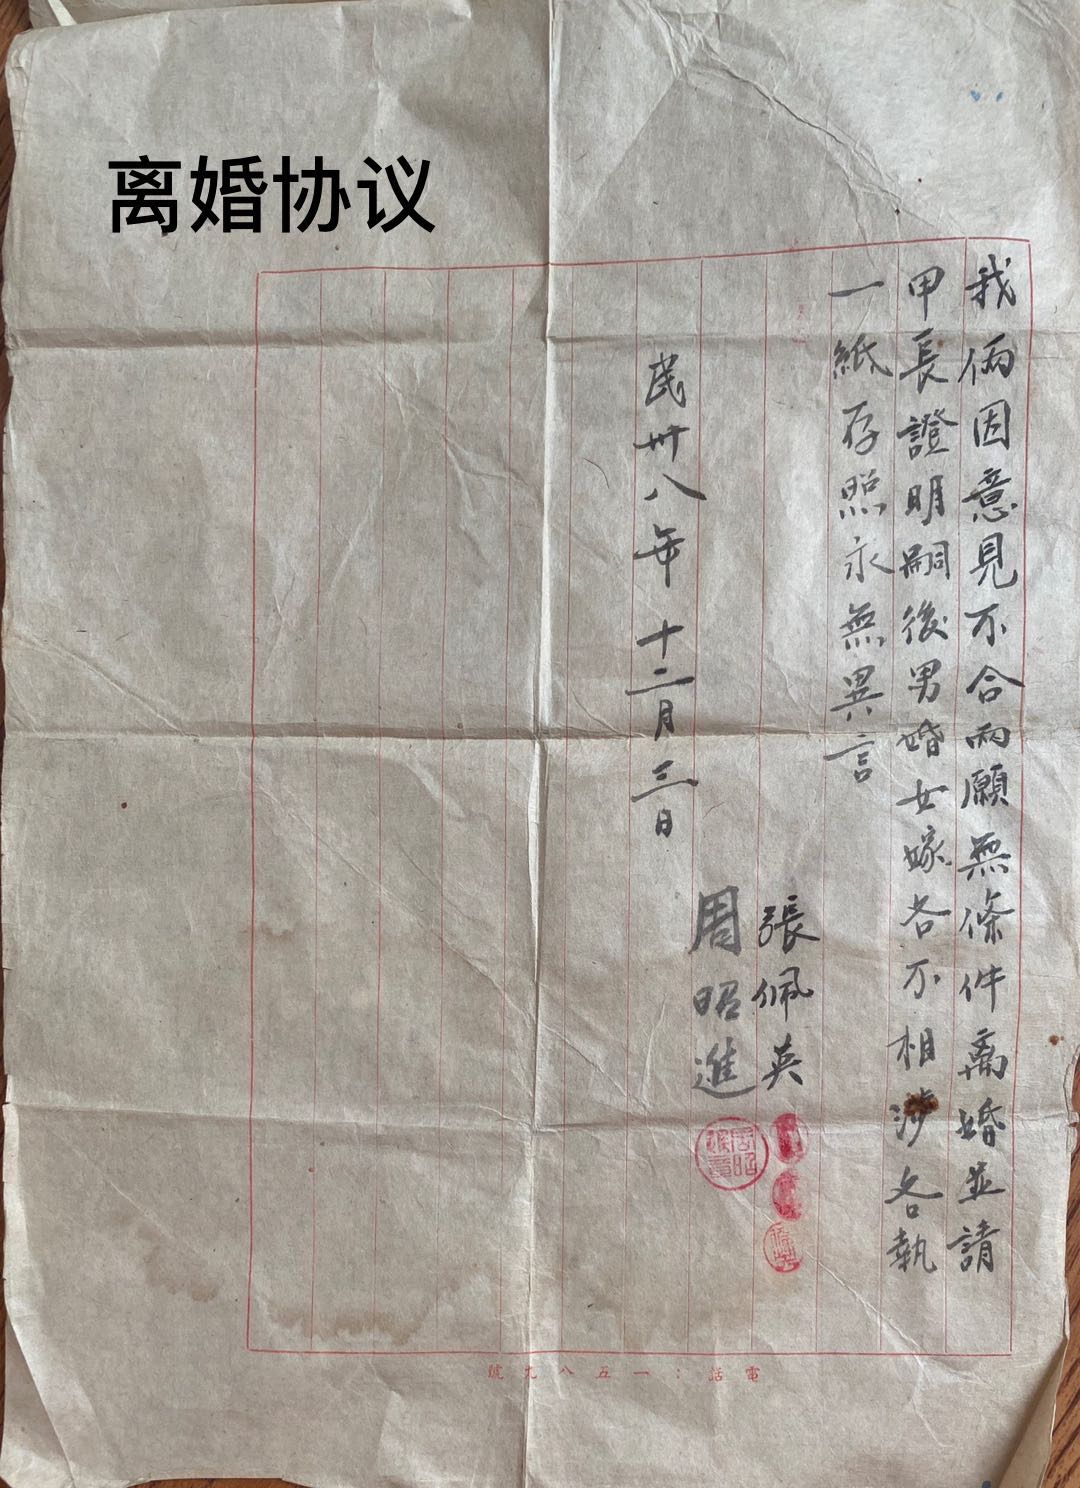 离婚协议
我倆因意見不合兩願無條件离婚並請
甲長證明嗣後男婚女嫁各不相涉各執
一紙存照永無異言
張佩英
周昭進
民卅八年十二月三日
電話：一五八九號